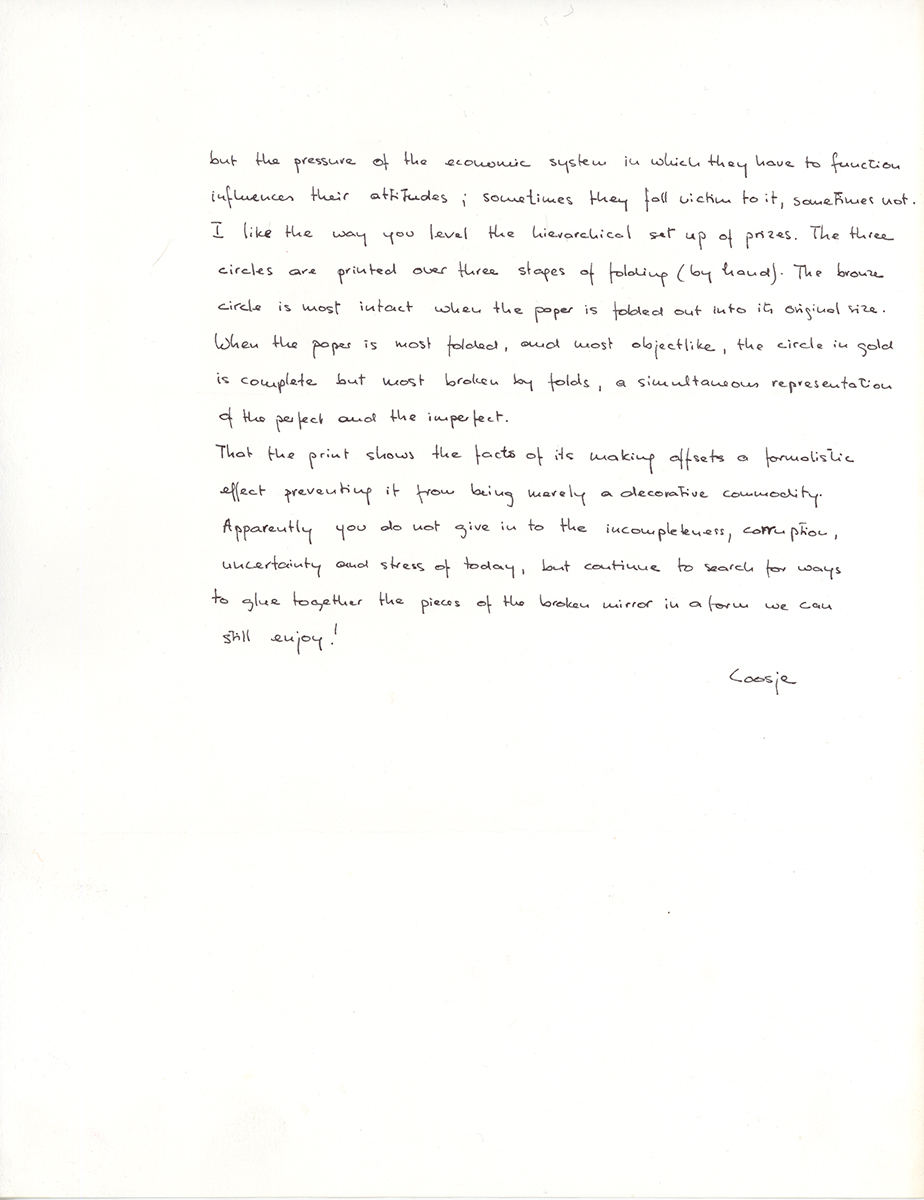 but the pressure of the economic system in which they have to function
influences their attitudes; sometimes they fall victim to it, sometimes not.
I like the way you level the hierarchical set up of prizes. The three
circles are printed over three stages of folding (by hand). The bronze
circle is most intact when the paper is folded out into its original size.
When the paper is most folded, and most objectlike, the circle in gold
is complete but most broken by folds, a simultaneous representation
of the perfect and the imperfect.
That the print shows the facts of its making offsets a formalistic
effect preventing it from being merely a decorative commodity.
Apparently you do not give in to the incompleteness, corruption,
uncertainty and stress of today, but continue to search for ways
to glue together the pieces of the broken mirror in a form we can
still enjoy!
Coosje